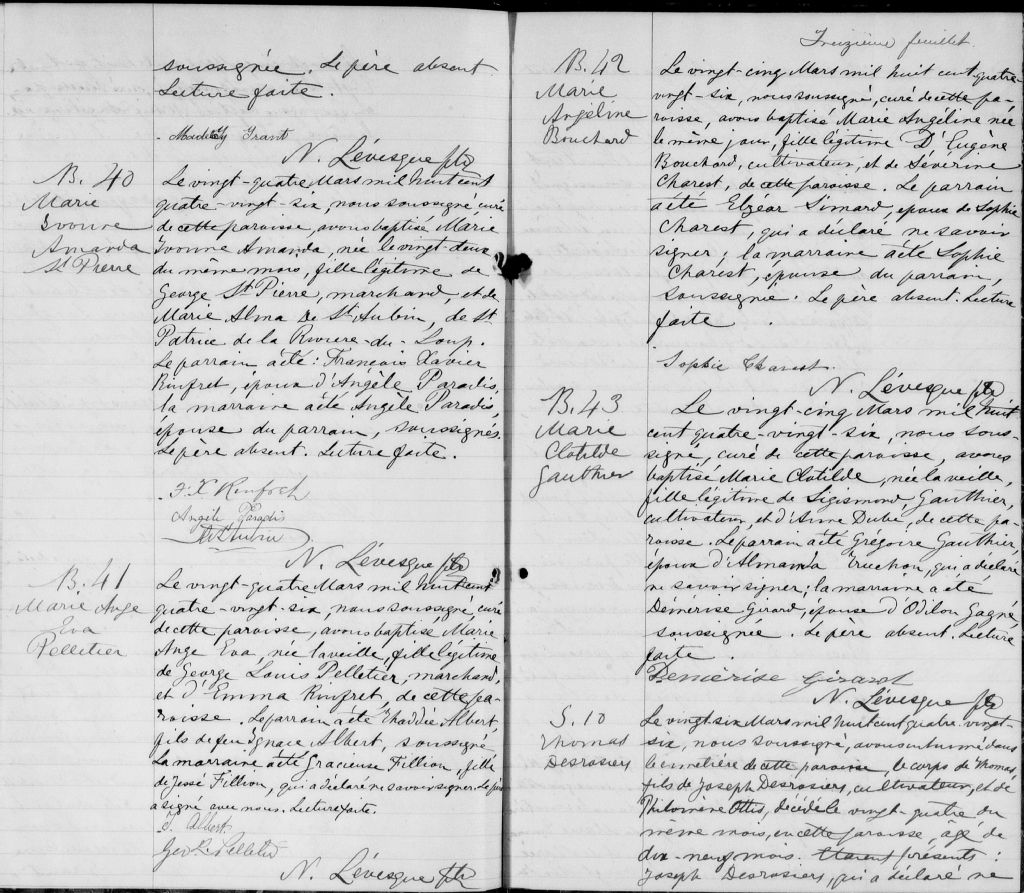 soussignée. Le père absent
Lecture faite.
Grant
N. Lévesque ptre
B. 40
Marie
Ivonne
Amanda
St Pierre
Le vingt-quatre Mars mil huit cent
quatre-vingt-six, nous soussigné, curé
de cette paroisse, avons baptisé Marie
Ivonne Amanda, née le vingt-deux
du même mois, fille légitime de
George St Pierre, marchand, et de
Marie Alma De St Aubin, de St
Patrice de la Riviere-du-Loup.
Le parrain a été: François Xavier
Rinfret, époux d'Angèle Paradis,
la marraine a été Angèle Paradis,
épouse du parrain, soussignés.
Le père absent. Lecture faite.
F. X. Rinfret
Angèle Paradis
N. Lévesque ptre
B. 41
Marie Ange
Eva
Pelletier
Le vingt-quatre Mars mil huit cent
quatre-vingt-six, nous soussigné, curé
de cette paroisse, avons baptisé Marie
Ange Eva, née la veille, fille légitime
de George Louis Pelletier, marchand,
et d'Emma Rinfret, de cette pa-
roisse. Le parrain a été Thaddée Albert,
fils de feu Ignace Albert, soussigné
La marraine a été Gracieuse Fillion, fille
de Jessé Fillion, qui a déclaré ne savoir signer. Le père
a signé avec nous. Lecture faite.
T. Albert
Geo L. Pelletier
N. Lévesque ptre
Treizième feuillet.
B. 42
Marie
Angéline
Bouchard
Le vingt-cinq Mars mil huit cent quatre
vingt-six, nous soussigné, curé de cette pa-
roisse, avons baptisé Marie Angéline née
le même jour, fille légitime D'Eugène
Bouchard, cultivateur, et de Séverine
Charest, de cette paroisse. Le parrain
a été Elzéar Simard, epoux de Sophie
Charest, qui a déclaré ne savoir
signer; la marraine a été Sophie
Charest, épouse du parrain,
soussignée. Le père absent. Lecture
faite.
Sophie Charest.
N. Lévesque ptre
B. 43
Marie
Clotilde
Gauthier
Le vingt-cinq Mars mil huit
cent quatre-vingt-six, nous sous-
signé, curé de cette paroisse, avons
baptisé Marie Clotilde, née la veille,
fille légitime de Sigismond Gauthier,
cultivateur, et d'Anne Dubé, de cette pa-
roisse. Le parrain a été Grégoire Gauthier,
époux d'Almanda Truchon, qui a déclaré
ne savoir signer; la marraine a été
Démérise Girard, epouse d'Odilon Gagné,
soussignée. Le père absent. Lecture
faite.
Demerise Girard
N. Lévesque ptre
S. 10
Thomas
Desrosiers
Le vingt-six Mars mil huit cent quatre-vingt-
six, nous soussigné, avons inhumé dans
le cimetière de cette paroisse, le corps de Thomas,
fils de Joseph Desrosiers, cultivateur, et de
Philomène Ottis, décédé le vingt-quatre du
même mois, en cette paroisse, agé de
dix-neuf mois. Etaient présents:
Joseph Desrosiers, qui a déclaré ne